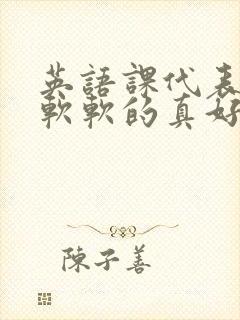 英語課代表
軟軟的真好
陳子善